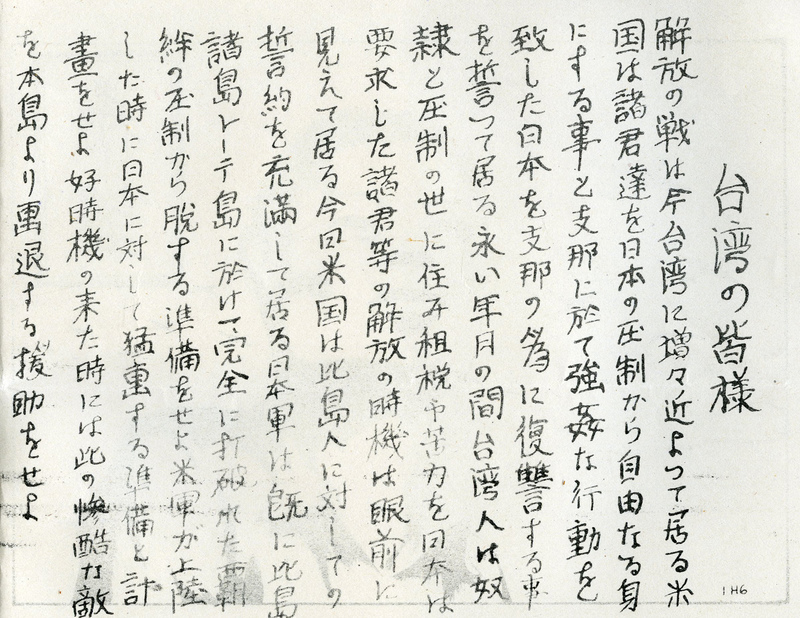 台湾の皆様
解放の戦は今台湾に増々近よって居る米
国は諸君達を日本の圧制から自由なる身
にする事と支那に於て強姦な行動を
致した日本を支那の為に復讐する事
を誓って居る永い年月の間台湾人は奴
隷と圧制の世に住み租税や苦力を日本は
要求した諸君等の解放の時機は眼前に
見えて居る今日米国は比島人に対しての
誓約を充満して居る日本軍は既に比島
諸島レーテ島に於けて完全に打破れた覇
絆の圧制から脱する準備をせよ米軍が上陸
した時に日本に対して猛襲する準備と計
畫をせよ好時機の来た時には此の惨酷な敵
を本島より撃退する援助をせよ
1H6